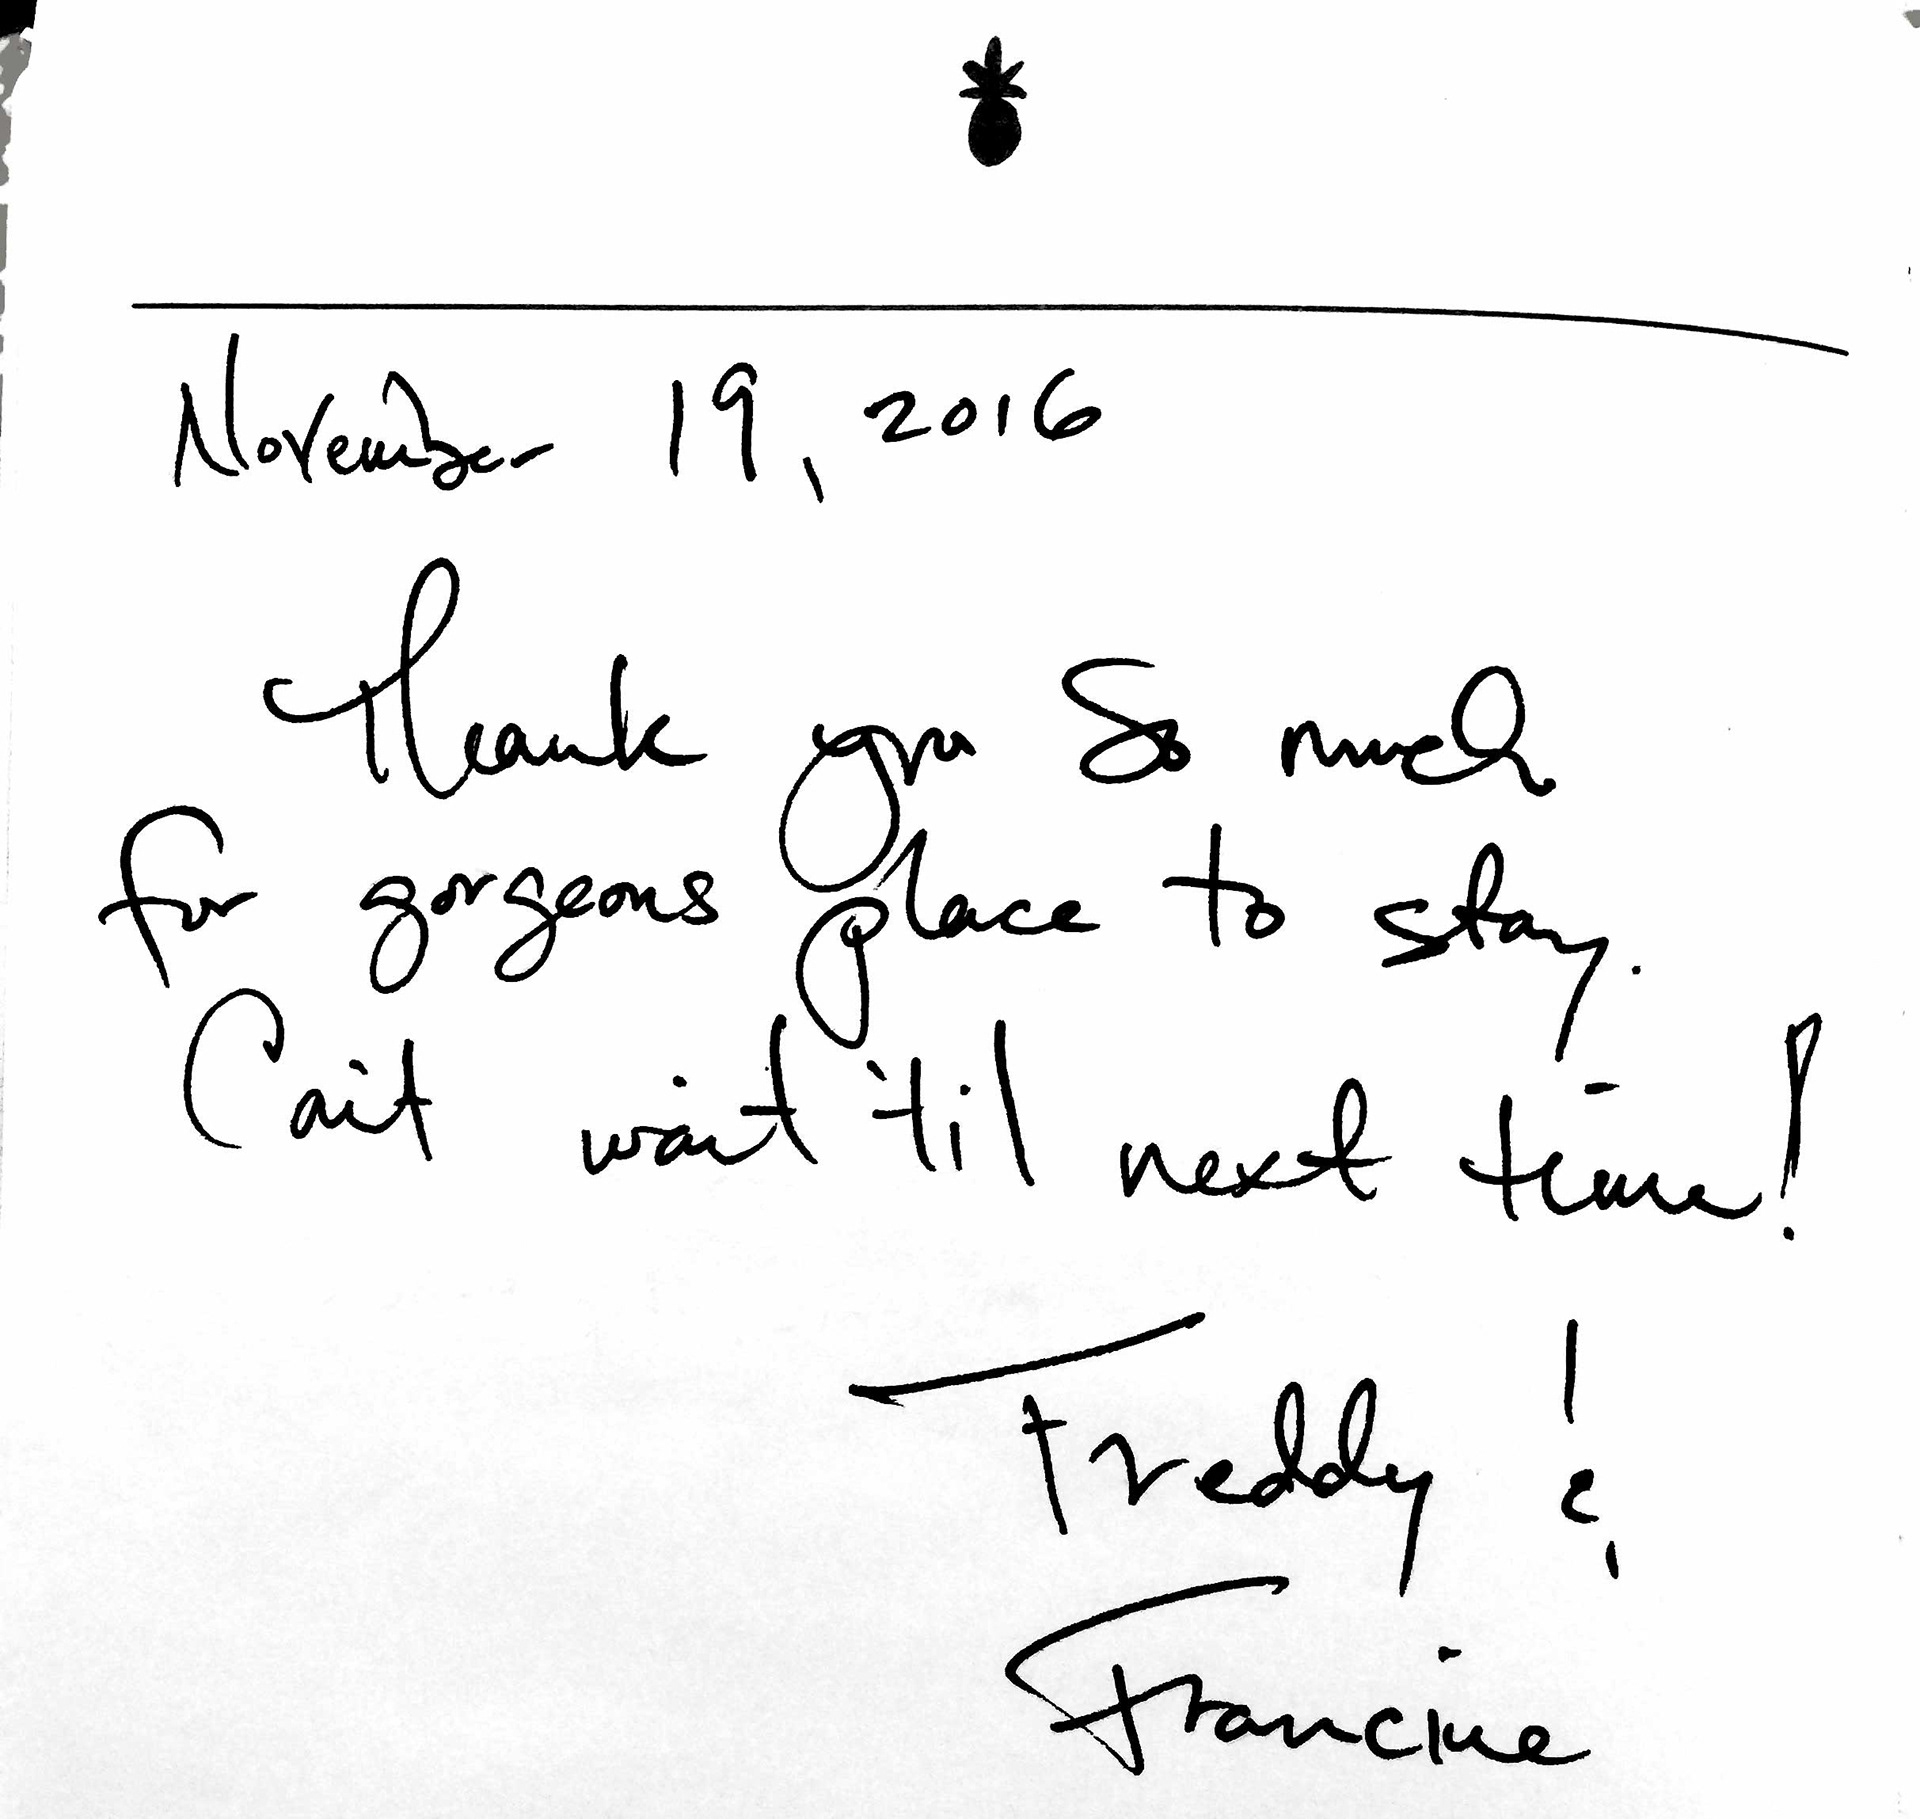 November 19, 2016
Thank you so much
for gorgeous place to stay.
Can't wait 'til next time!
Freddy &
Francine